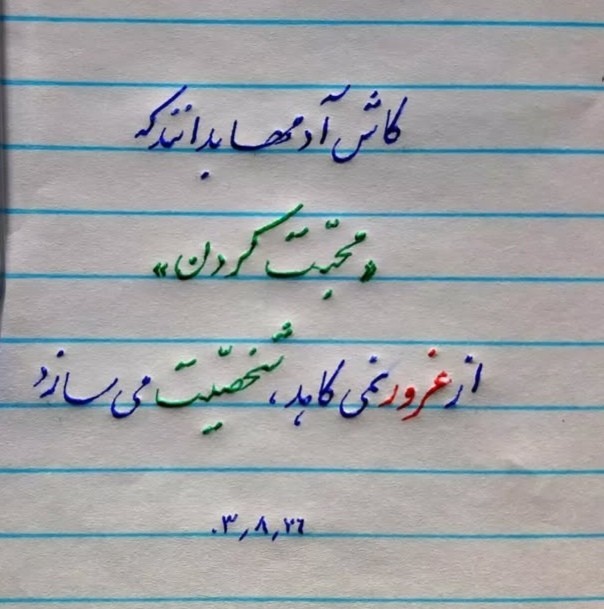 کاش آدمها بدانند که
«محبّت کردن»
از غرور نمی کاهد، شخصّیت می سازد
۰۳٫۸٫۲۶